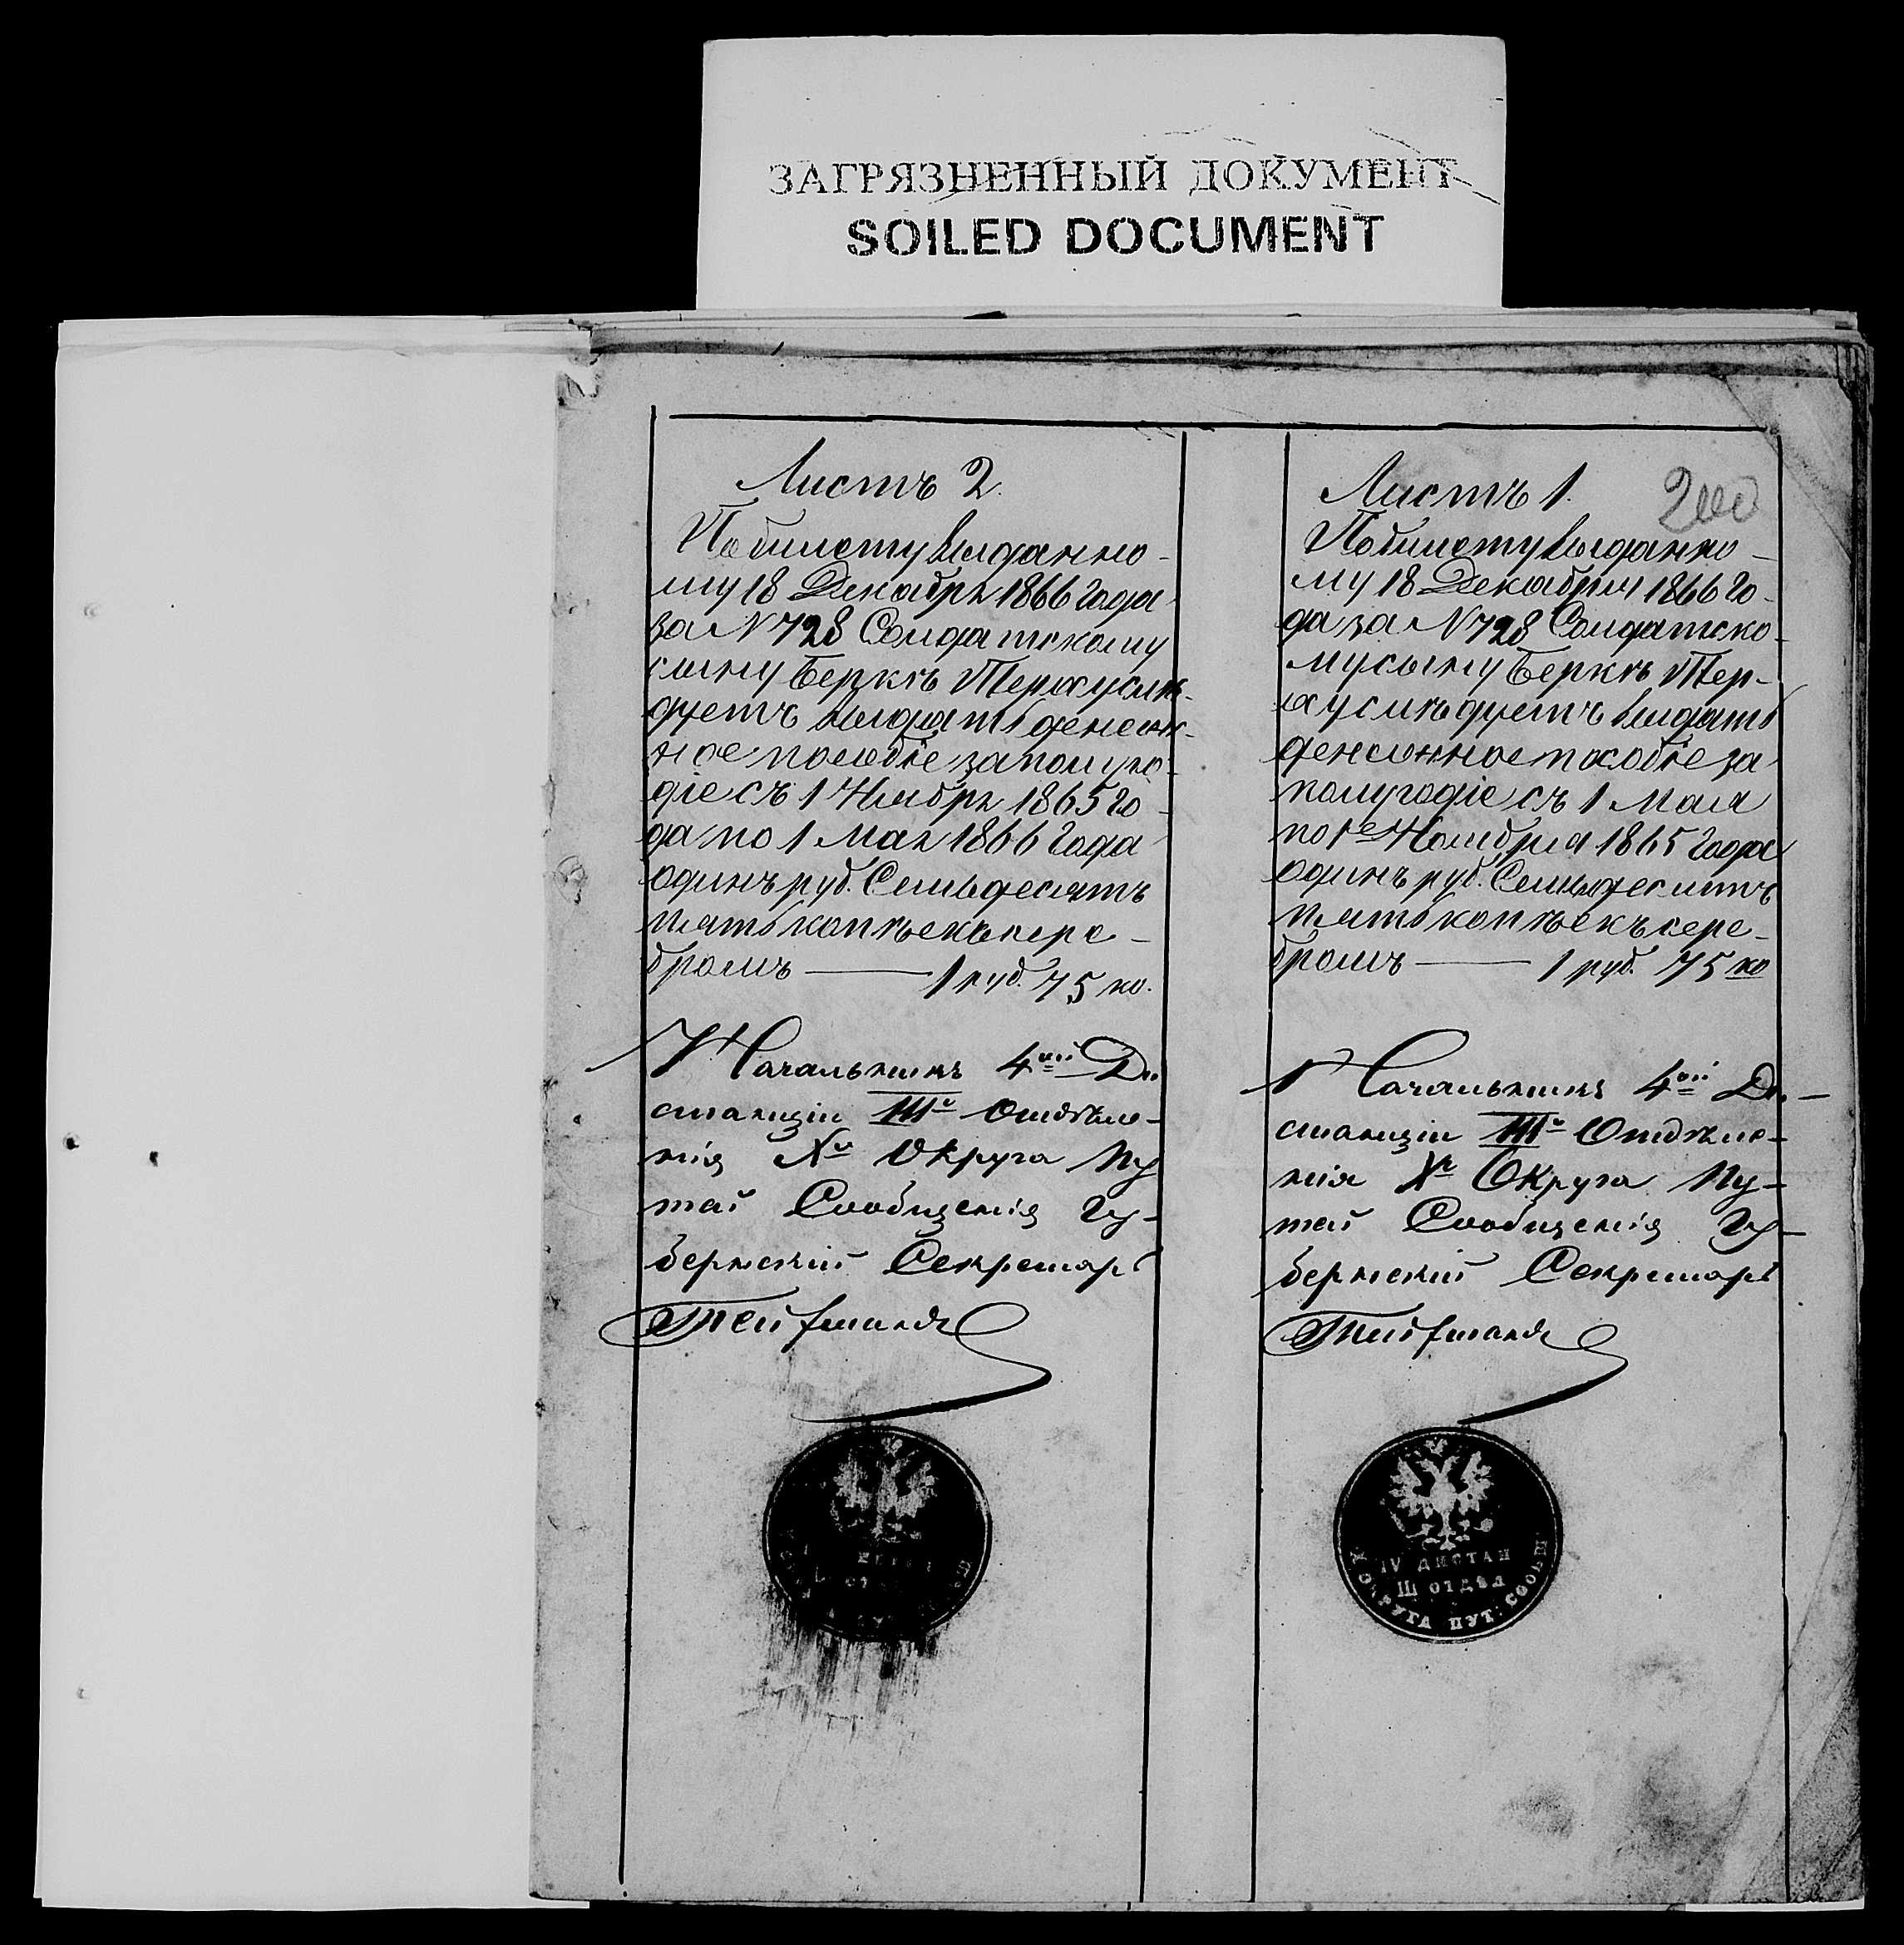 ЗАГРЯЗНЕННЫЙ ДОКУМЕНТ
SOILED DOCUMENT
Листъ 2.
По билету выданно-
му 18 Декабря 1866 года
за N 728 Солдатскому
сыну Беркѣ Терху слѣ-
дуетъ выдать денеж-
ное пособіе за полуго-
діе съ 1 Ноября 1865 го-
да по 1 Мая 1866 года
одинъ руб. Семьдесятъ
пять копѣекъ сере-
бромъ — 1 руб. 75 ко.
Начальникъ 4ой Ди
станціи IIIго Отдѣле-
нія Xго Округа Пу
тей Сообщенія Гу-
бернскій Секретарь
Листъ 1.
200
По билету выданно-
му 18 Декабря 1866 го-
да за N 728 Солдатско-
му сыну Беркѣ Тер-
ху слѣдуетъ выдать
денежное пособіе за
полугодіе съ 1 Мая
по 1е Ноября 1865 года
одинъ руб. Семьдесятъ
пять копѣекъ сере-
бромъ — 1 руб. 75 ко
Начальникъ 4ой Ди-
станціи IIIго Отдѣле-
нія Xго Округа Пу-
тей Сообщенія Гу-
бернскій Секретарь
IV ДИСТАН
III ОТДѢЛ
X ОКРУГА ПУТ: СООБЩ